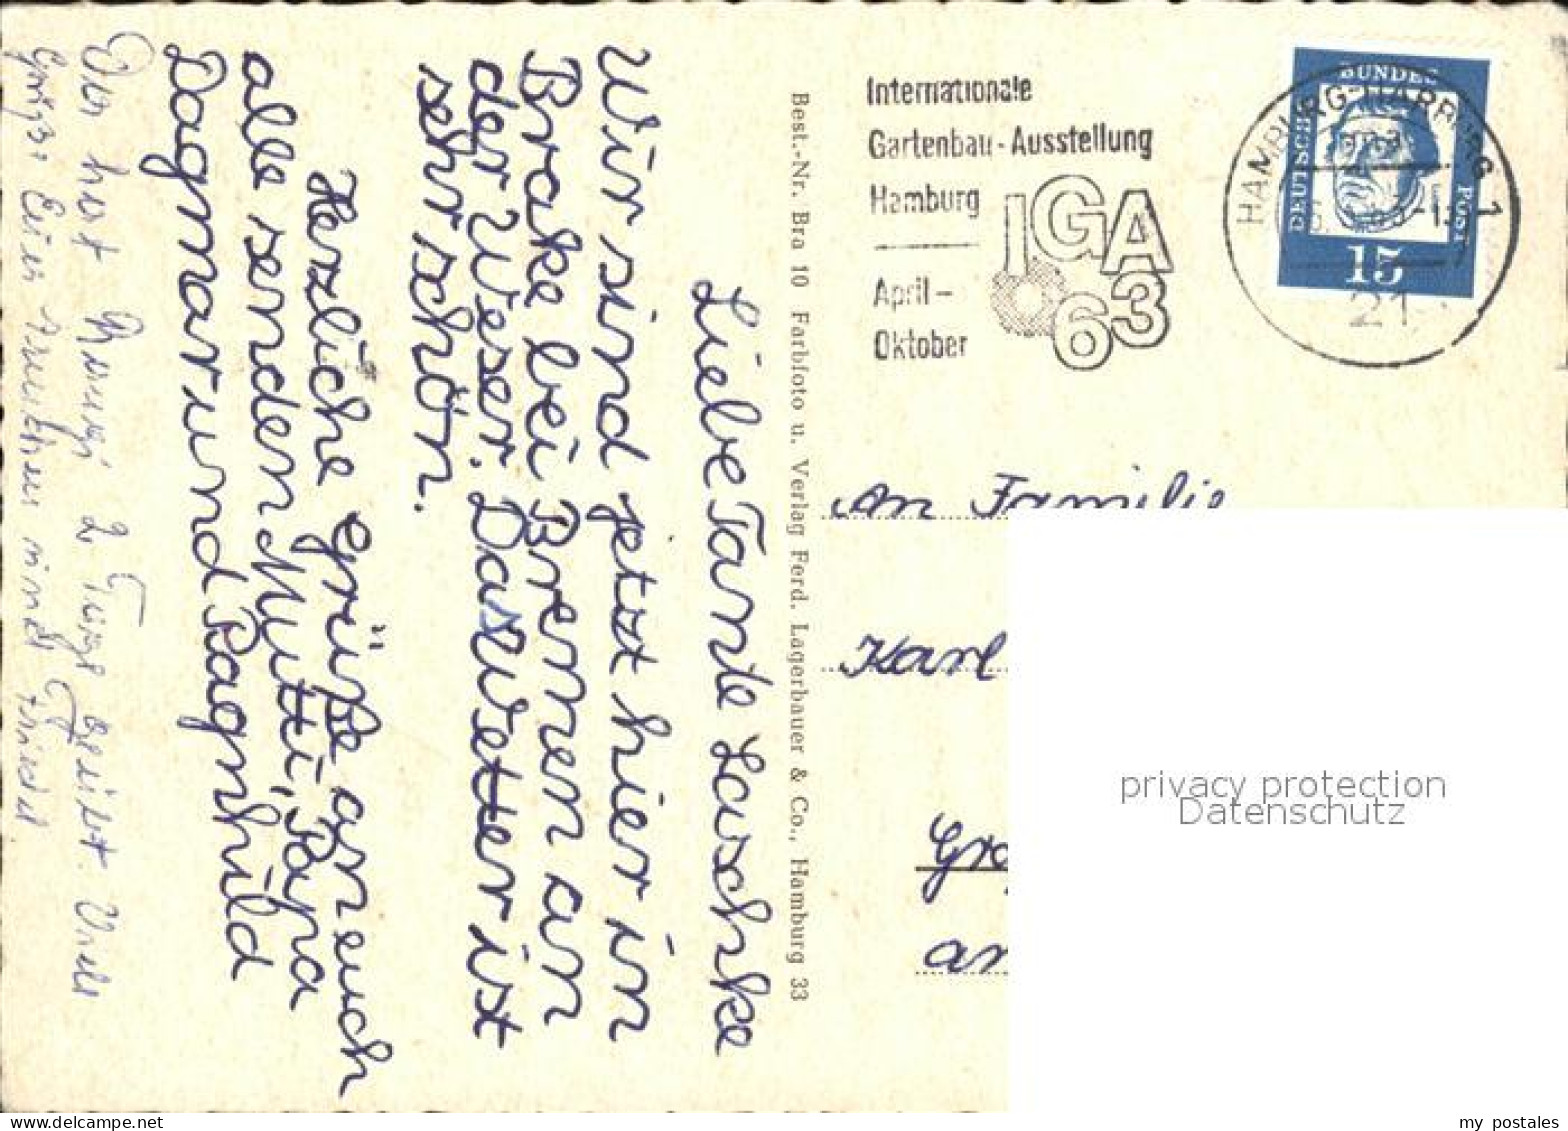 Liebe Tante Laschke
Wir sind jetzt hier in
Brake bei Bremen an
der Weser. Das Wetter ist
sehr schön.
Herzliche Grüße an euch
alle senden Mutti, Papa
Dagmar und Ragnhild
2 Tage Viele
Grüße
Best.-Nr. Bra 10 Farbfoto u. Verlag Ferd. Lagerbauer & Co., Hamburg 33
Internationale
Gartenbau-Ausstellung
Hamburg
April-
Oktober
IGA
63
HAMBURG-HARBURG 1
21
DEUTSCHE
BUNDES
POST
15
An Familie
Karl
privacy protection
Datenschutz
my postales